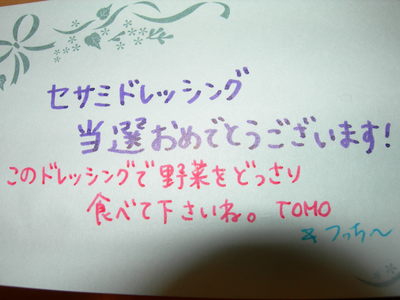 セサミドレッシング
当選おめでとうございます!
このドレッシングで野菜をどっさり
食べて下さいね。TOMO
&つっち〜